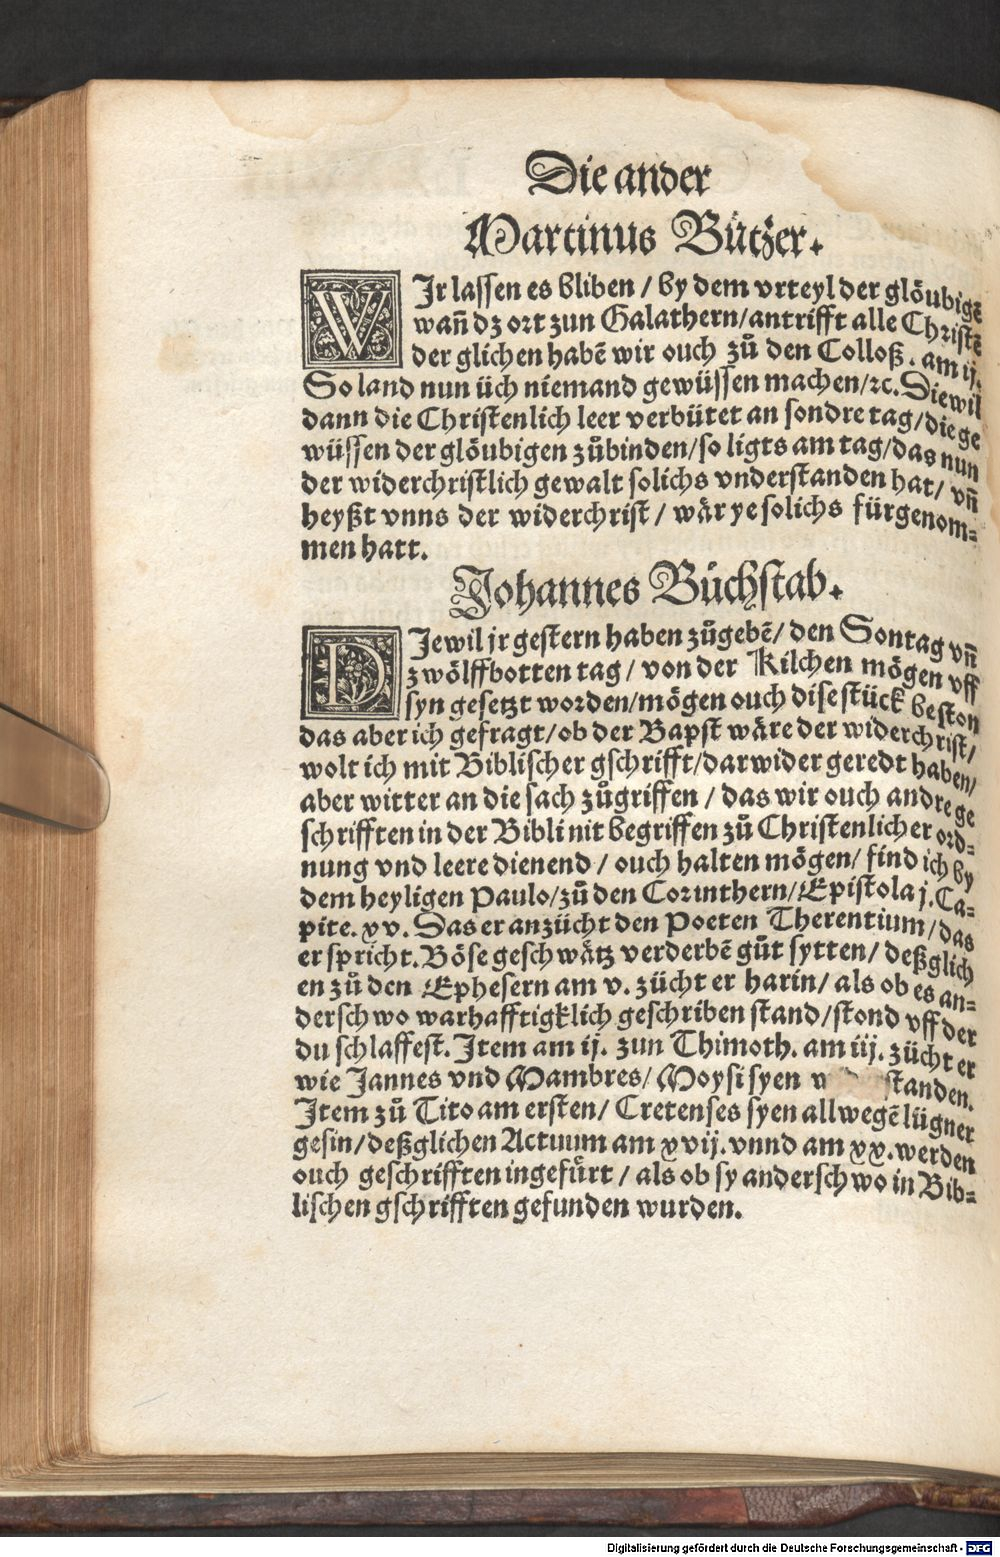 Die ander
Martinus Bützer.
WIr lassen es bliben / by dem vrteyl der glöubigē
wañ dz ort zun Galathern/antrifft alle Christē
der glichen habē wir ouch zů den Colloß. am ij.
So land nun üch niemand gewüssen machen/ꝛc. Diewil
dann die Christenlich leer verbütet an sondre tag/die ge
wüssen der glöubigen zůbinden/so ligts am tag/das nun
der widerchristlich gewalt solichs vnderstanden hat/ vñ
heyßt vnns der widerchrist / wär ye solichs fürgenom⸗
men hatt.
Johannes Bůchstab.
DJewil jr gestern haben zůgebē/ den Sontag vñ
zwölffbotten tag/ von der Kilchen mögen vff
syn gesetzt worden/mögen ouch dise stück beston
das aber ich gefragt/ob der Bapst wäre der widerchrist/
wolt ich mit Biblischer gschrifft/darwider geredt haben/
aber witter an die sach zůgriffen / das wir ouch andre ge
schrifften in der Bibli nit begriffen zů Christenlicher ord⸗
nung vnd leere dienend / ouch halten mögen/ find ich by
dem heyligen Paulo/zů den Corinthern/Epistola j. Ca⸗
pite. xv. Das er anzücht den Poeten Therentium/das
er spricht. Böse geschwätz verderbē gůt sytten/ deßglich
en zů den Ephesern am v. zücht er harin/ als ob es an⸗
derschwo warhafftigklich geschriben stand/stond vff der
du schlaffest. Item am ij. zun Thimoth. am iij. zücht er
wie Jannes vnd Mambres/ Moysi syen standen.
Item zů Tito am ersten/ Cretenses syen allwegē lügner
gesin/deßglichen Actuum am xvij. vnnd am xx. werden
ouch geschrifften ingefürt / als ob sy anderschwo in Bib⸗
lischen gschrifften gefunden wurden.
Digitalisierung gefördert durch die Deutsche Forschungsgemeinschaft - DFG